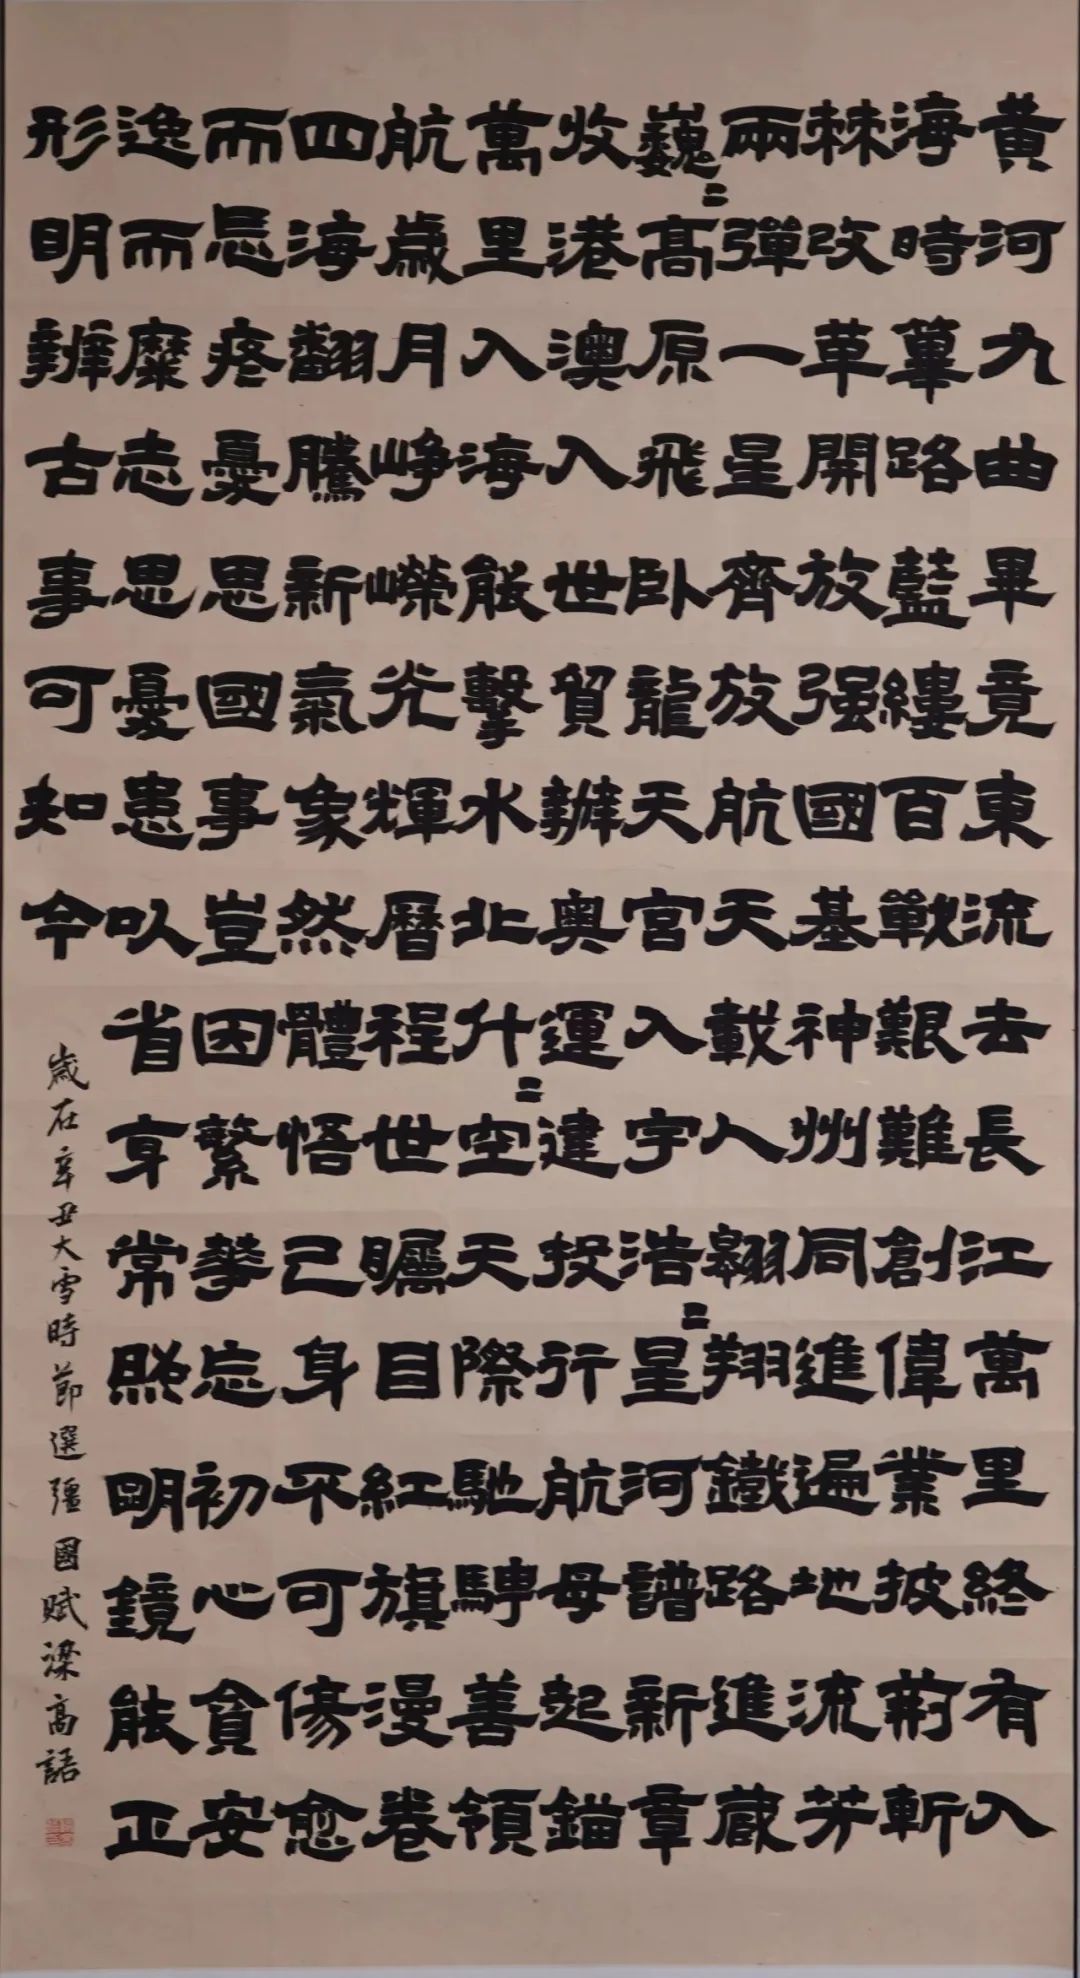 黃河九曲畢竟東流去長江萬里終有入
海時篳路藍縷百戰艱難創偉業披荊斬
棘改革開放强國基神州同進遍地流芳
兩彈一星齊放航天載人翱翔鐵路進藏
巍〻高原飛臥龍天宮入宇浩〻星河譜新章
收港澳入世貿辦奧運建投行航母起錨
萬里入海能擊水北升〻空天際馳騁善領
航歲月崢嶸光輝曆程世矚目紅旗漫卷
四海翻騰新氣象然體悟己身不可傷愈
而忘疼憂思國事豈因繁華忘初心貪安
逸而糜志思憂患以省身常照明鏡能正
形明辨古事可知今
歲在辛丑大雪時節選彊國賦梁高語